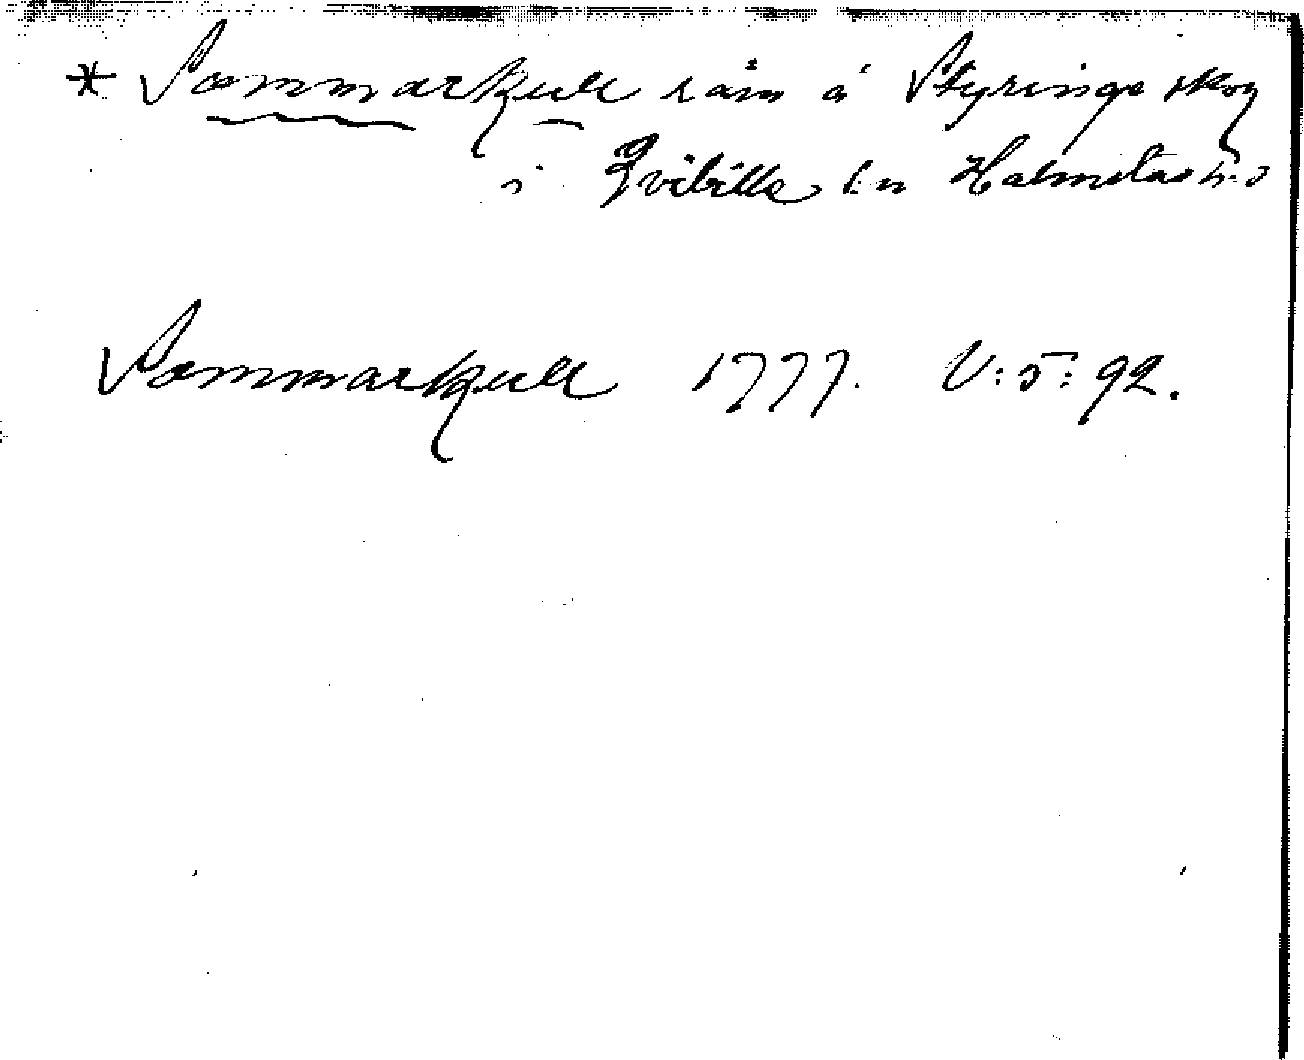 * Sommarkull råm å Styringe skog
i Qvibille sn Halmstads h:d
Sommarkull 1777. V:5:92.